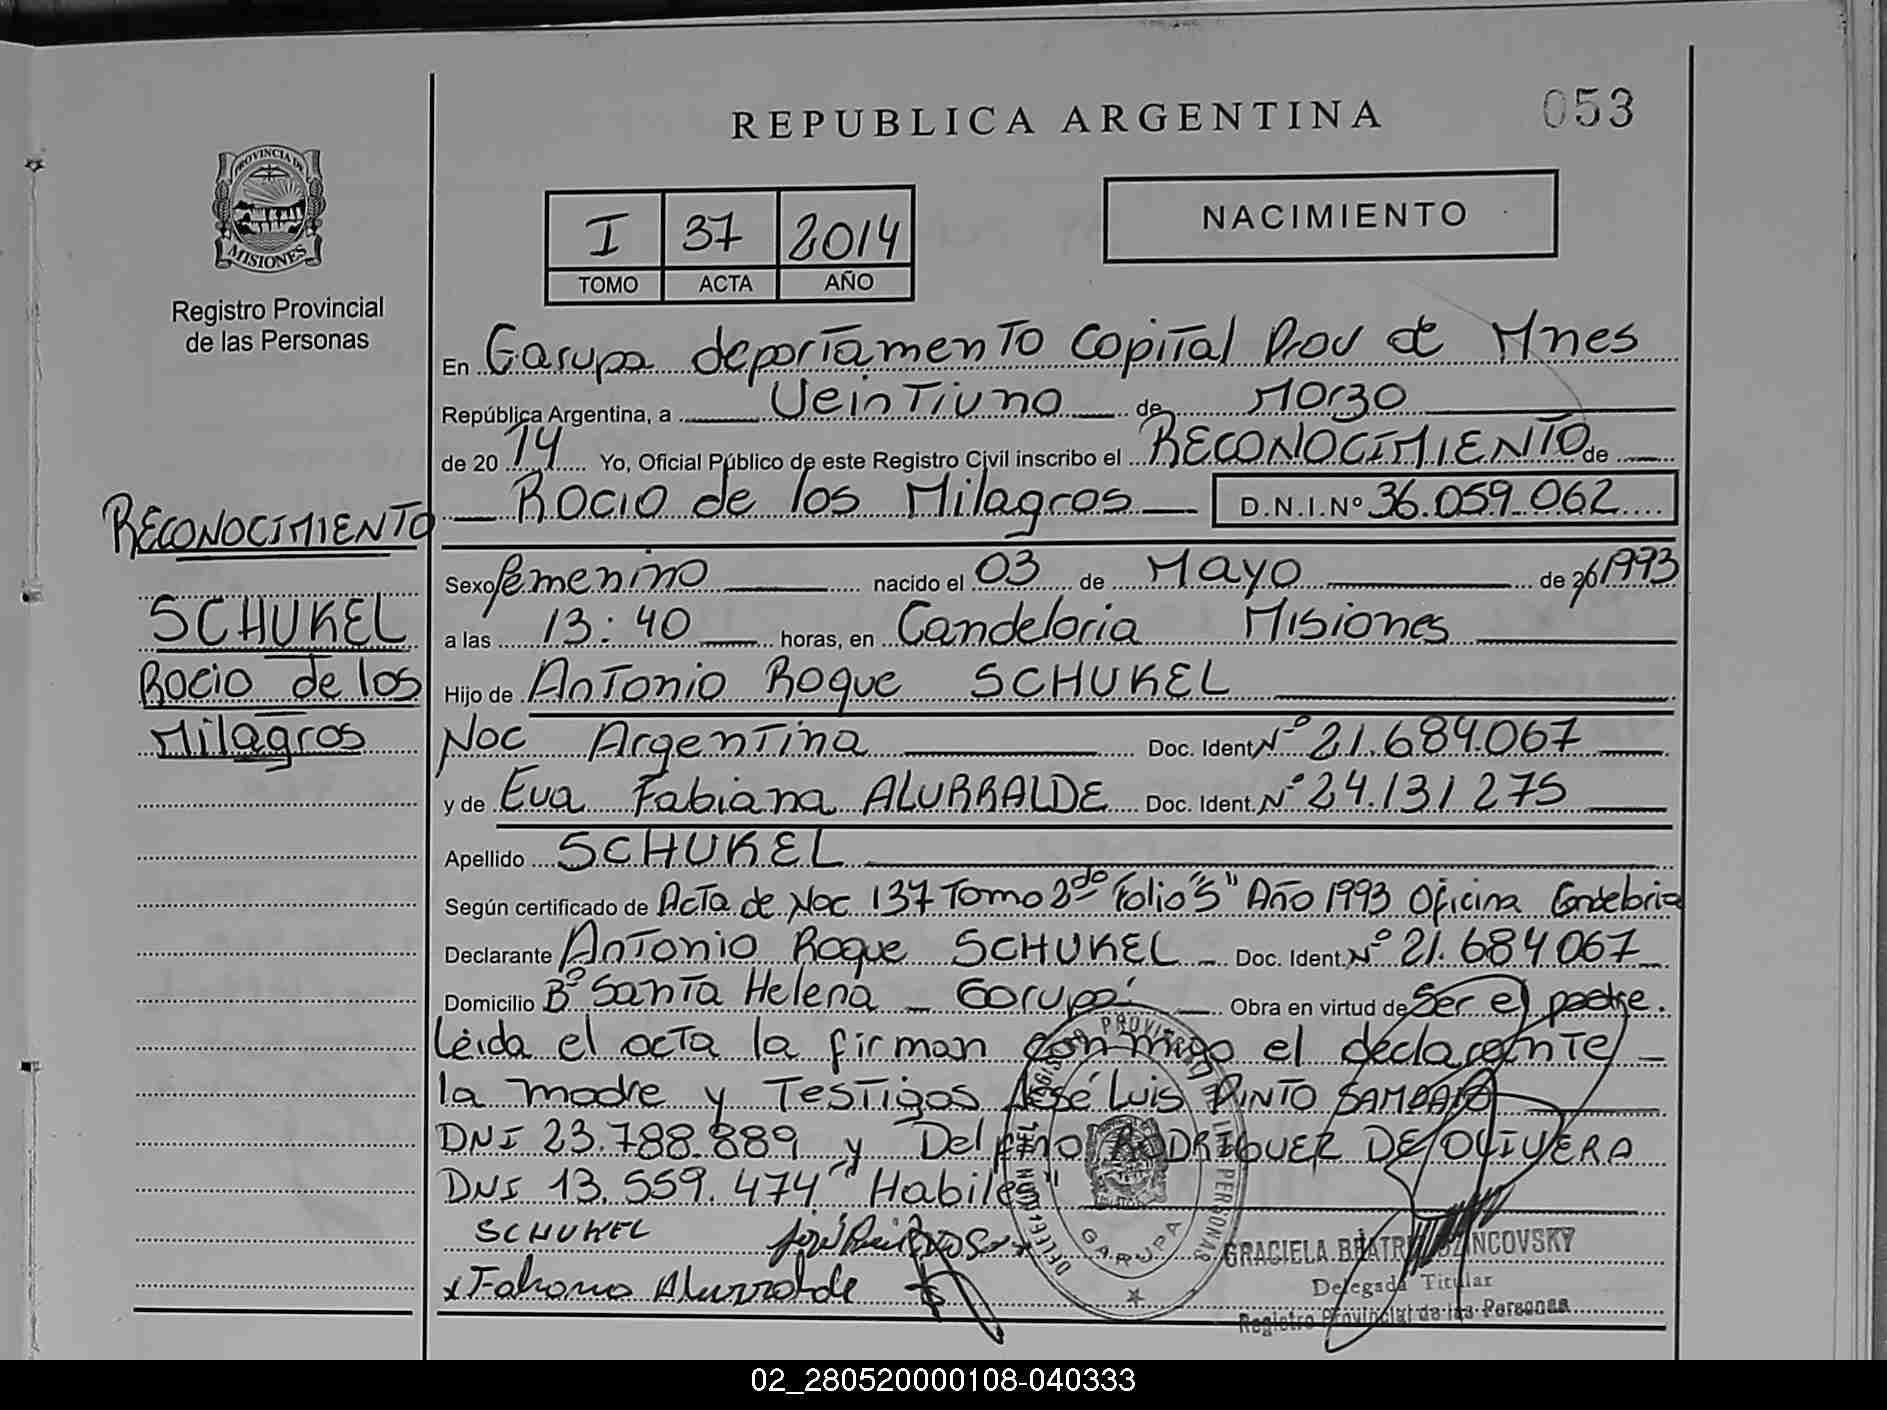 REPUBLICA ARGENTINA
053
PROVINCIA DE
MISIONES
Registro Provincial
de las Personas
I 37 2014
TOMO ACTA AÑO
NACIMIENTO
En Garupa departamento Capital Prov de Mnes
República Argentina, a Veintiuno de Marzo
de 20 14 Yo, Oficial Público de este Registro Civil inscribo el RECONOCIMIENTO de
Rocio de los Milagros D.N.I.Nº 36.059.062
RECONOCIMIENTO
SCHUKEL
Rocio de los
Milagros
Sexo femenino nacido el 03 de Mayo de 1993
a las 13:40 horas, en Candelaria Misiones
Hijo de Antonio Roque SCHUKEL
Nac Argentina Doc. Ident. Nº 21.684.067
y de Eva Fabiana ALURRALDE Doc. Ident. Nº 24.131 275
Apellido SCHUKEL
Según certificado de Acta de Nac 137 Tomo 2do Folio "S" Año 1993 Oficina Candelaria
Declarante Antonio Roque SCHUKEL Doc. Ident. Nº 21.684 067
Domicilio Bº Santa Helena - Garupá Obra en virtud de Ser el padre.
Leida el acta la firman conmigo el declarante
la madre y Testigos José Luis PINTO
DNI 23.788.889 y Delfino RODRIGUEZ DE OLIVERA
DNI 13.559.474 "Habiles"
SCHUKEL
x Fabiana Alurralde
GARUPA
GRACIELA
Delegada Titular
Registro Provincial de las Personas
02_280520000108-040333